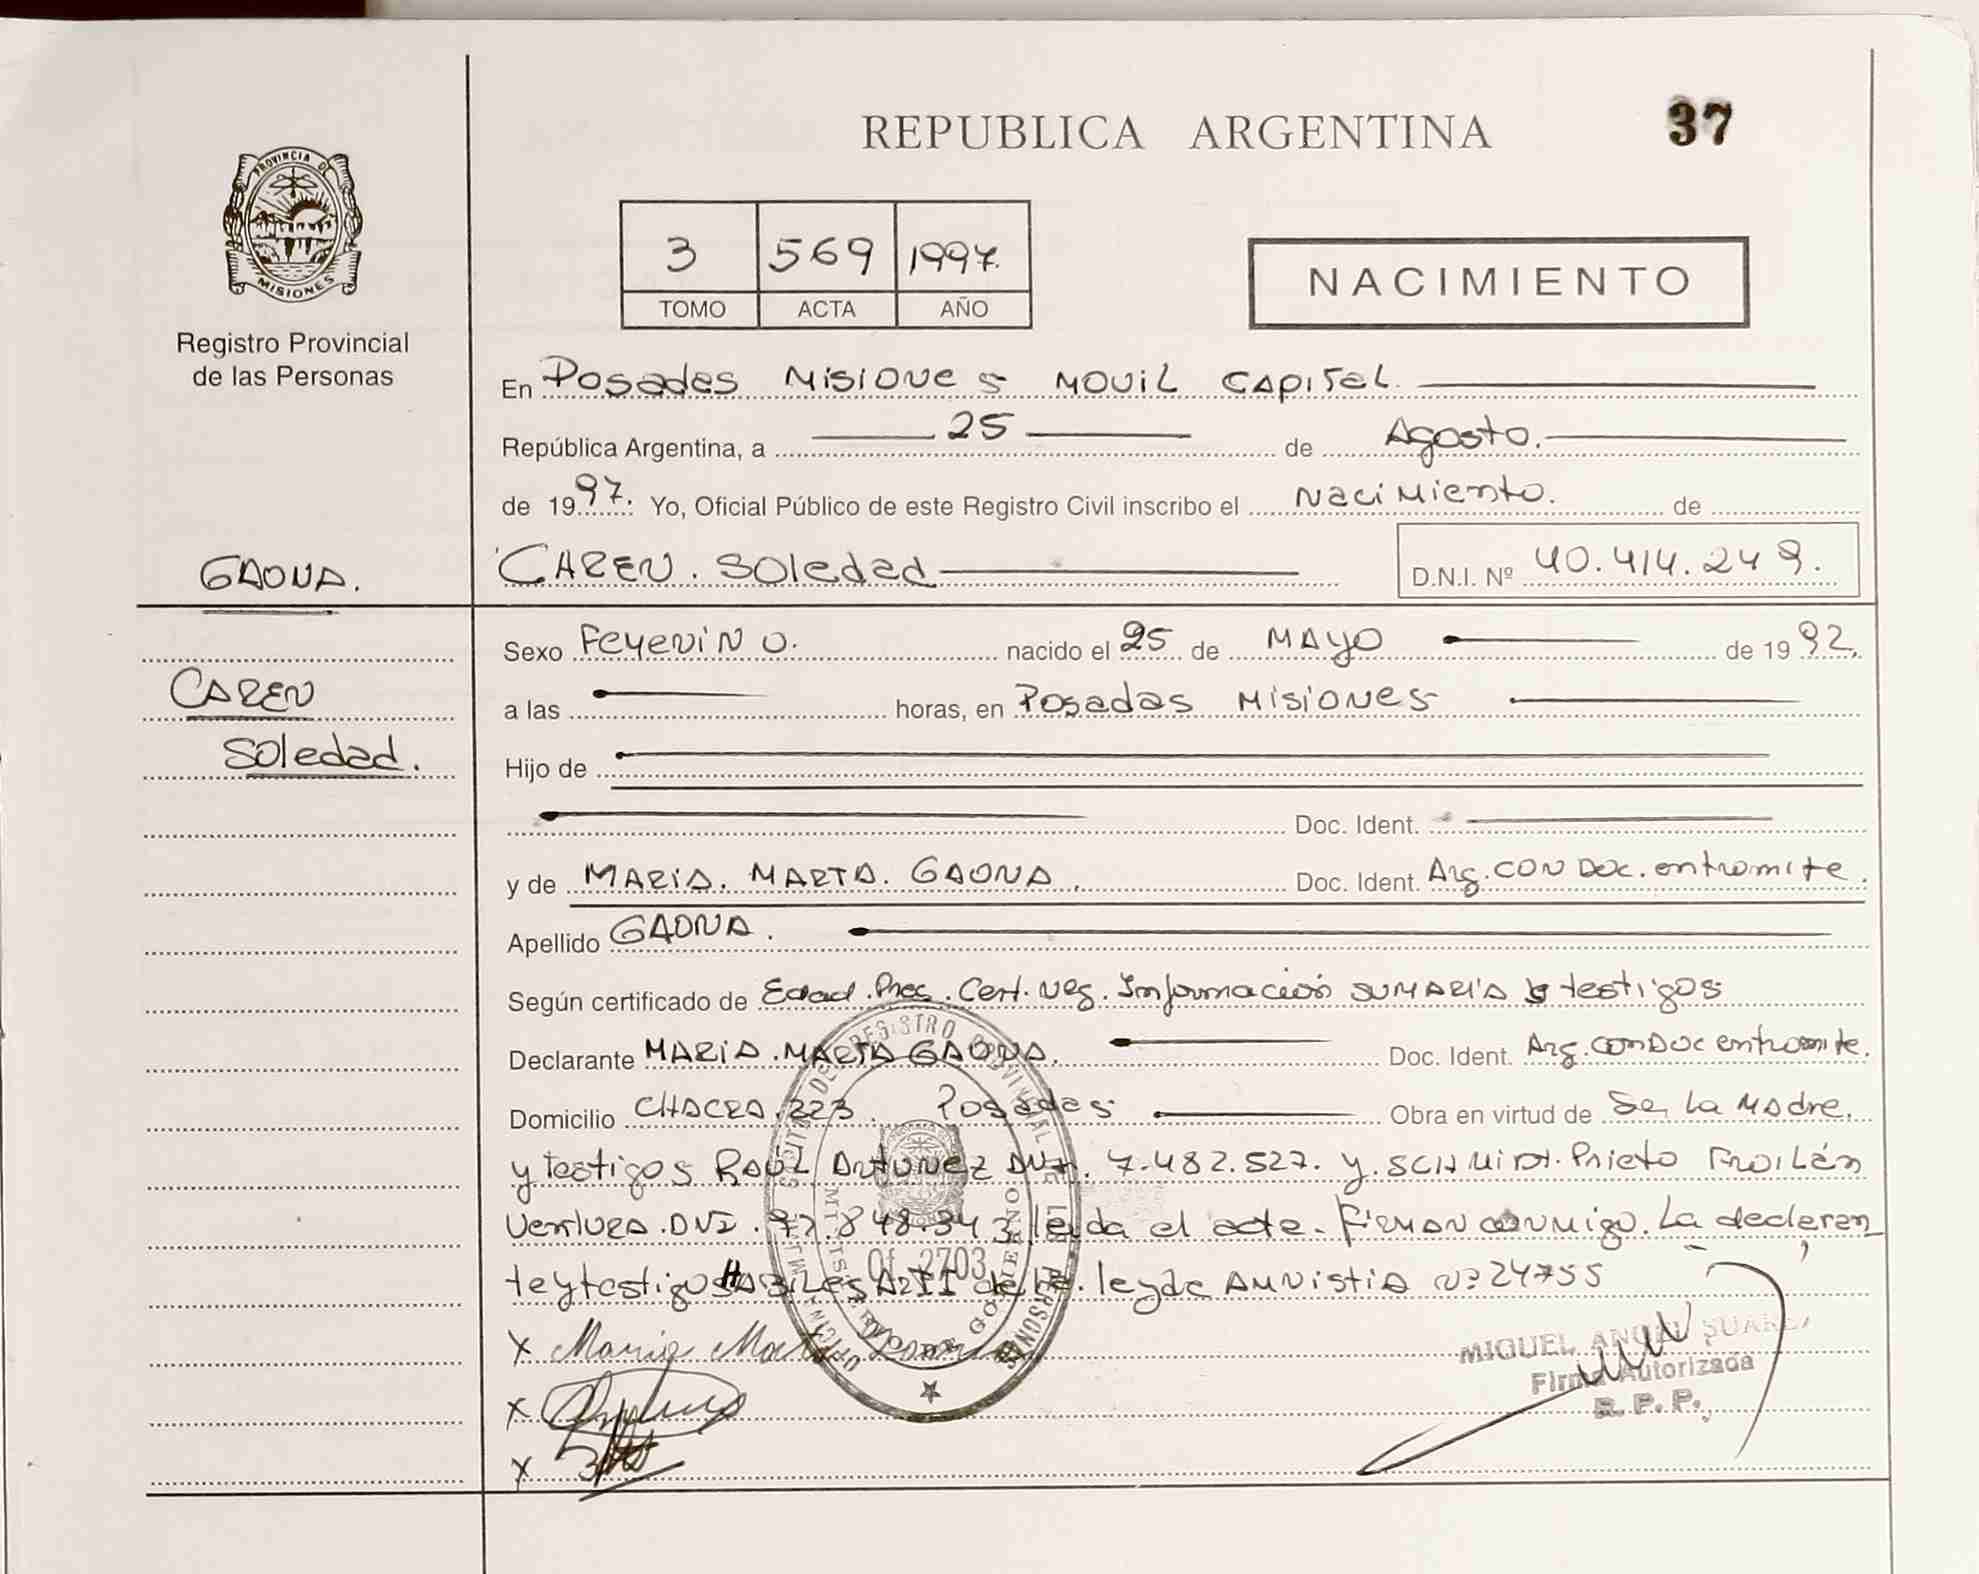 REPUBLICA ARGENTINA
37
PROVINCIA DE
MISIONES
Registro Provincial
de las Personas
3 569 1997.
TOMO ACTA AÑO
NACIMIENTO
En Posadas Misiones MOVIL CAPITAL.
República Argentina, a 25 de Agosto.
de 1997. Yo, Oficial Público de este Registro Civil inscribo el Nacimiento. de
GAONA.
CAREN. Soledad
D.N.I. Nº 40.414.249.
Sexo Femenino. nacido el 25 de MAYO de 1992.
CAREN
a las horas, en Posadas Misiones
Soledad.
Hijo de
Doc. Ident.
y de MARIA. MARTA. GAONA. Doc. Ident. Arg. CON Doc. entramite.
Apellido GAONA.
Según certificado de Edad. Prec. Cert. Neg. Información SUMARIA y testigos
Declarante MARIA. MARTA GAONA. Doc. Ident. Arg. con Doc entramite.
Domicilio CHACRA. 223 Posadas Obra en virtud de Ser La Madre.
y testigos RAÚL ANTUNEZ DNI. 7.482.527. y. SCHMIDT. Prieto Froilán
Ventura. DNI. 92.848.343 leyda el acta. Firman conmigo. La declaran
te y testigos HABILES ART II de la. ley de AMNISTIA Nº 24755
Of. 2703
X Maria Marta Gaona
X
X
MIGUEL ANGEL SUAREZ
Firma Autorizada
R. P. P.